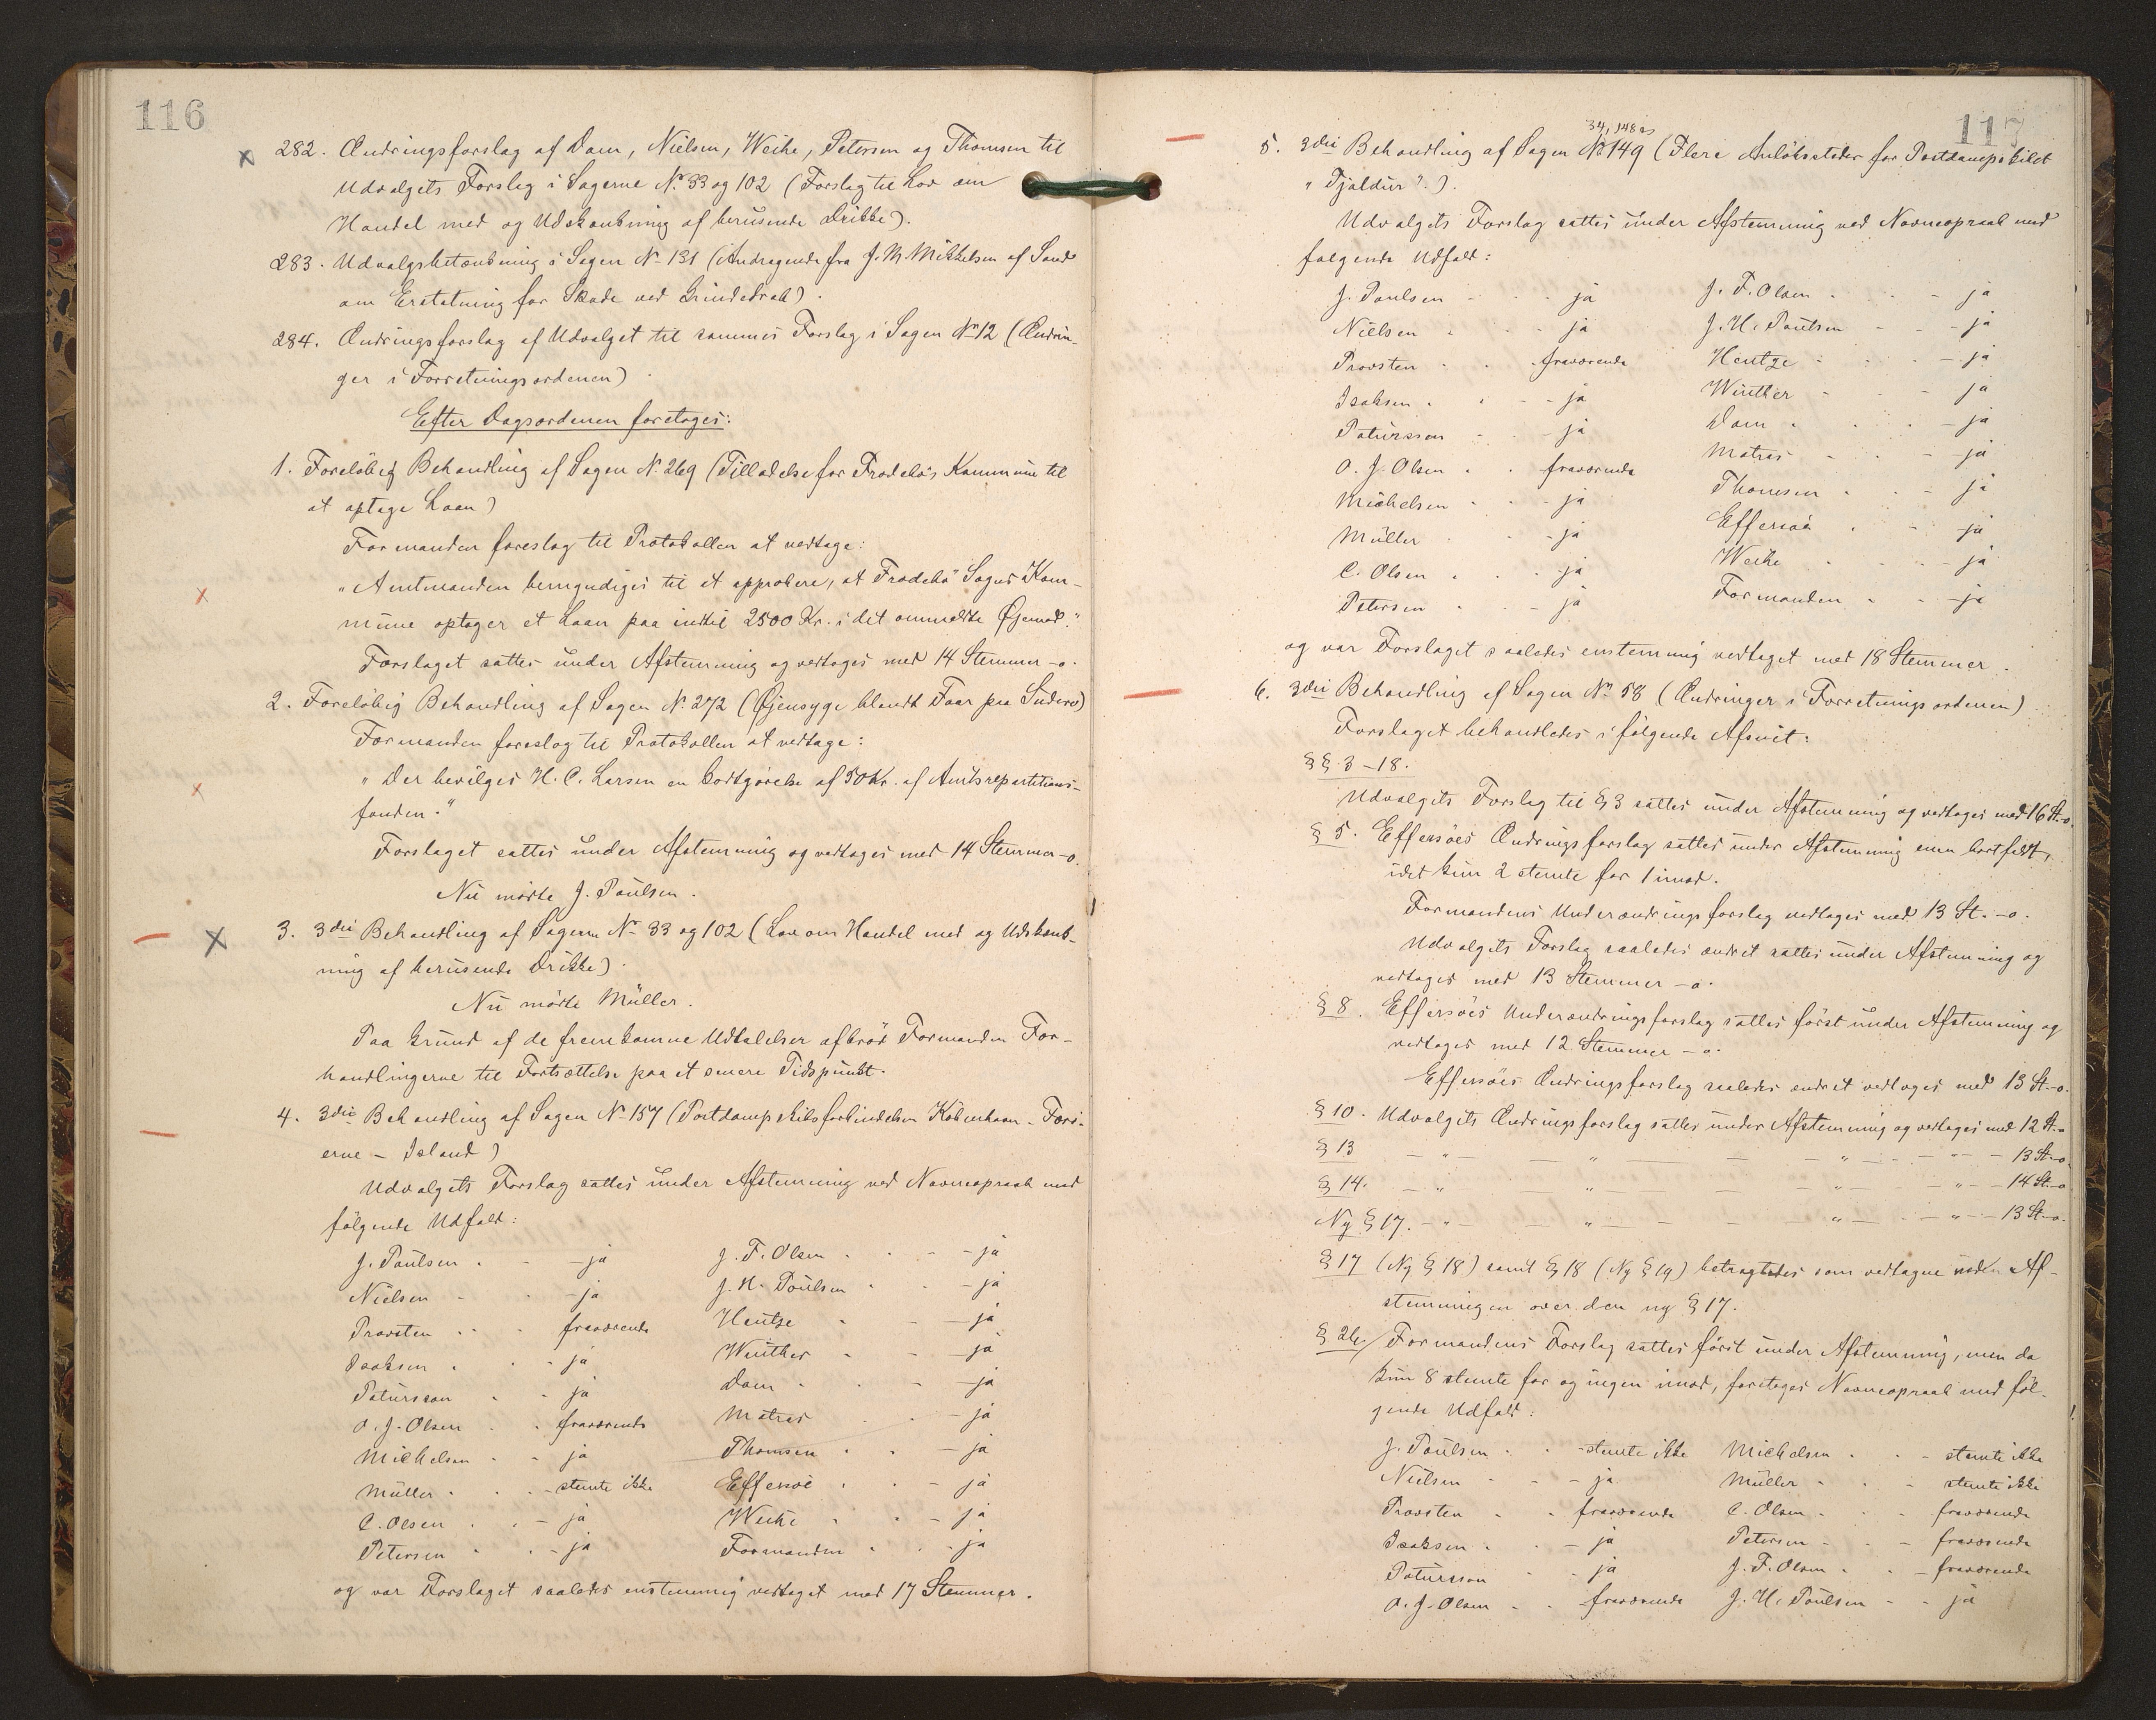 116
282. Ændringsforslag af Dam, Nielsen, Weihe, Petersen og Thomsen til
Udvalgets Forslag i Sagerne No. 33 og 102 (Forslag til Lov om
Handel med og Udskænkning af berusende Drikke).
283. Udvalgsbetænkning i Sagen No 131 (Andragende fra J. M. Mikkelsen af Sand
om Erstatning for Skade ved Grindedrab).
284. Ændringsforslag af Udvalget til sammes Forslag i Sagen No 12 (Ændrin-
ger i Forretningsordenen).
Efter Dagsordenen foretoges:
1. Foreløbig Behandling af Sagen No. 269 (Tilladelse for Frodebø's Kommune til
at optage Laan)
Formanden foreslog til Protokollen at vedtage:
"Amtmanden bemyndiges til at approbere, at Frodebø Sogns Kom-
mune optager et Laan paa indtil 2500 Kr. i det ommeldte Øjemed."
Forslaget sattes under Afstemning og vedtoges med 14 Stemmer -o.
2. Foreløbig Behandling af Sagen No. 272 (Øjensyge blandt Faar paa Suderø)
Formanden foreslog til Protokollen at vedtage:
"Der bevilges H. C. Larsen en Godtgørelse af 50 Kr. af Amtsrepartitions-
fonden."
Forslaget sattes under Afstemning og vedtoges med 14 Stemmer -o.
Nu mødte J. Paulsen.
3. 3die Behandling af Sagerne No 33 og 102 (Lov om Handel med og Udskænk-
ning af berusende Drikke).
Nu mødte Müller.
Paa Grund af de fremkomne Udtalelser afbrød Formanden For-
handlingerne til Fortsættelse paa et senere Tidspunkt.
4. 3die Behandling af Sagen No 157 (Postdampskibsforbindelsen København - Færø-
erne - Island)
Udvalgets Forslag sattes under Afstemning ved Navneopraab med
følgende Udfald:
J. Paulsen . - - ja J. F. Olsen . . - - ja
Nielsen - . - ja J. H. Poulsen . - ja
Provsten . . . fraværende Hentze . - - ja
Isaksen . . - ja Winther . - - ja
Patursson . . ja Dam . . - - ja
O. J. Olsen . . fraværende Matras . . - ja
Michelsen . . ja Thomsen . . - ja
Müller . . . - stemte ikke Effersøe . . - ja
C. Olsen . . - ja Weihe . . - ja
Petersen . . - ja Formanden . . - ja
og var Forslaget saaledes enstemmig vedtaget med 17 Stemmer.
117
34, 148 og
5. 3die Behandling af Sagen No 149 (Flere Anløbssteder for Postdampskibet
"Tjaldur".).
Udvalgets Forslag sattes under Afstemning ved Navneopraab med
følgende Udfald:
J. Paulsen - . - ja J. F. Olsen . . - ja
Nielsen . . - ja J. H. Poulsen - - - ja
Provsten . . . fraværende Hentze . . - ja
Isaksen . . - - ja Winther - - - ja
Patursson - . - ja Dam . . . - ja
O. J. Olsen . . fraværende Matras - . - ja
Michelsen . . - ja Thomsen . . - ja
Müller . - - ja Effersøe . . - ja
C. Olsen . . . ja Weihe . . - - ja
Petersen . . - ja Formanden . . - ja
og var Forslaget saaledes enstemmig vedtaget med 18 Stemmer.
6. 3die Behandling af Sagen No 58 (Ændringer i Forretningsordenen).
Forslaget behandledes i følgende Afsnit:
§§ 3 - 18.
Udvalgets Forslag til § 3 sattes under Afstemning og vedtoges med 16 St.-o.
§ 5. Effersøes Ændringsforslag sattes under Afstemning men bortfaldt,
idet kun 2 stemte for 1 imod.
Formandens Underændringsforslag vedtoges med 13 St. -o.
Udvalgets Forslag saaledes ændret sattes under Afstemning og
vedtoges med 13 Stemmer -o.
§ 8. Effersøes Underændringsforslag sattes først under Afstemning og
vedtoges med 12 Stemmer -o.
Effersøes Ændringsforslag saaledes ændret vedtoges med 13 St.-o.
§ 10. Udvalgets Ændringsforslag sattes under Afstemning og vedtoges med 12 St.-o
§ 13 - " - - " - - - " - - " - - 13 St.-o.
§ 14. - " - - " - - - " - - " - - 14 St.-o
Ny § 17. - " - - " - - - " - - " - - 13 St.-o.
§ 17 (Ny § 18) samt § 18 (Ny § 19) betragtedes som vedtagne uden Af-
stemningen over den ny § 17.
§ 26. Formandens Forslag sattes først under Afstemning, men da
kun 8 stemte for og ingen imod, foretoges Navneopraab med føl-
gende Udfald:
J. Paulsen . . - stemte ikke Michelsen . . - stemte ikke
Nielsen - - - ja Müller - . - stemte ikke
Provsten - . fraværende C. Olsen - . - fraværende
Isaksen . . - ja Petersen - . - fraværende
Patursson - - ja J. F. Olsen . . - fraværende
O. J. Olsen - . fraværende J. H. Poulsen - - ja